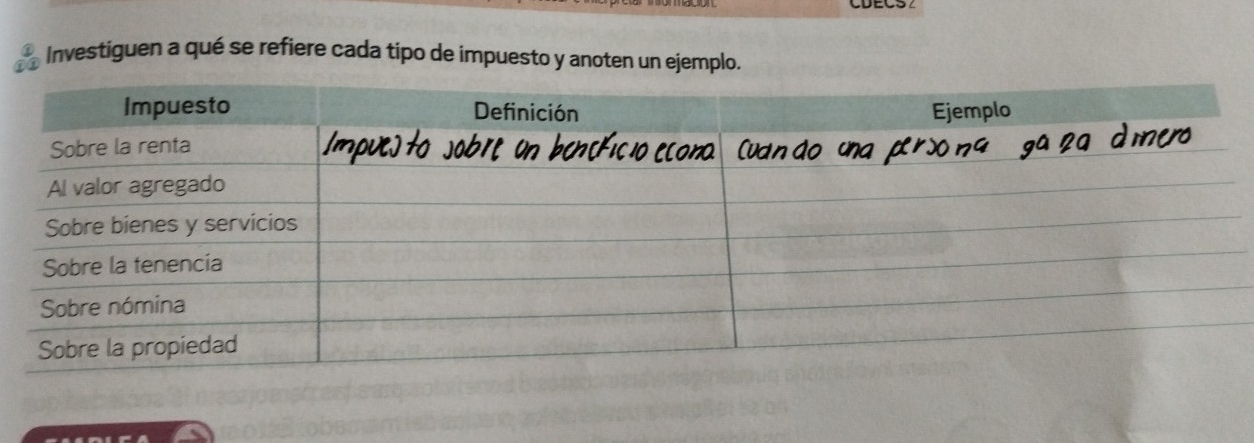 CDECS2
Investiguen a qué se refiere cada tipo de impuesto y anoten un ejemplo.
Impuesto Definición Ejemplo
Sobre la renta Impuesto sobre un beneficio econo cuando una persona gaza dinero
Al valor agregado
Sobre bienes y servicios
Sobre la tenencia
Sobre nómina
Sobre la propiedad